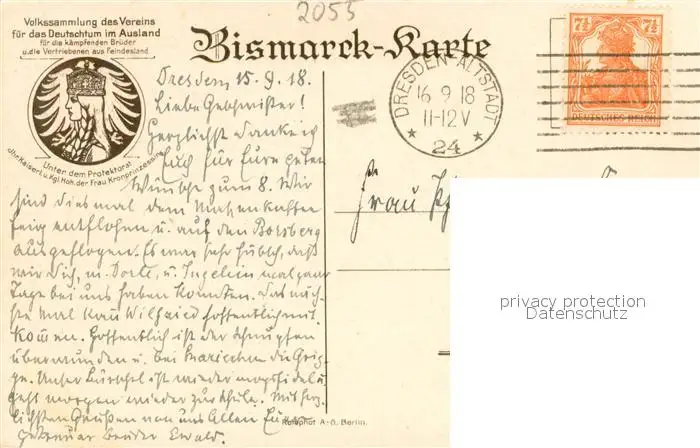 2055
Volkssammlung des Vereins
für das Deutschtum im Ausland
für die kämpfenden Brüder
u.die Vertriebenen aus Feindesland
Unter dem Protektorat
Ihr. Kaiserl. u. Kgl. Hoh. der Frau Kronprinzessin
Bismarck-Karte
DRESDEN-ALTSTADT
16 9 18
11-12 V
* 24 *
7½ 7½
DEUTSCHES REICH
Dresden, 15.9.18.
Liebe Geschwister!
Herzlichst danke ich
Euch für Eure guten
Wünsche zum 8. Wir
sind diesmal dem
entflohen u. auf den Borsberg
ausgeflogen. Es war sehr hübsch, daß
wir Dich, m. Dorle, u. Ingelein mal paar
Tage bei uns haben konnten. Das näch-
ste Mal kann Wilfried hoffentlich mit
kommen. Hoffentlich ist der Schnupfen
überwunden u. bei Mariechen die Grip-
pe. Unser ist wieder mopsfidel u.
geht morgen wieder zur Schule. Mit herz-
lichsten Grüßen von uns Allen Euer
getreuer Bruder Ewald.
Frau
Rotophot A.-G. Berlin.
privacy protection
Datenschutz